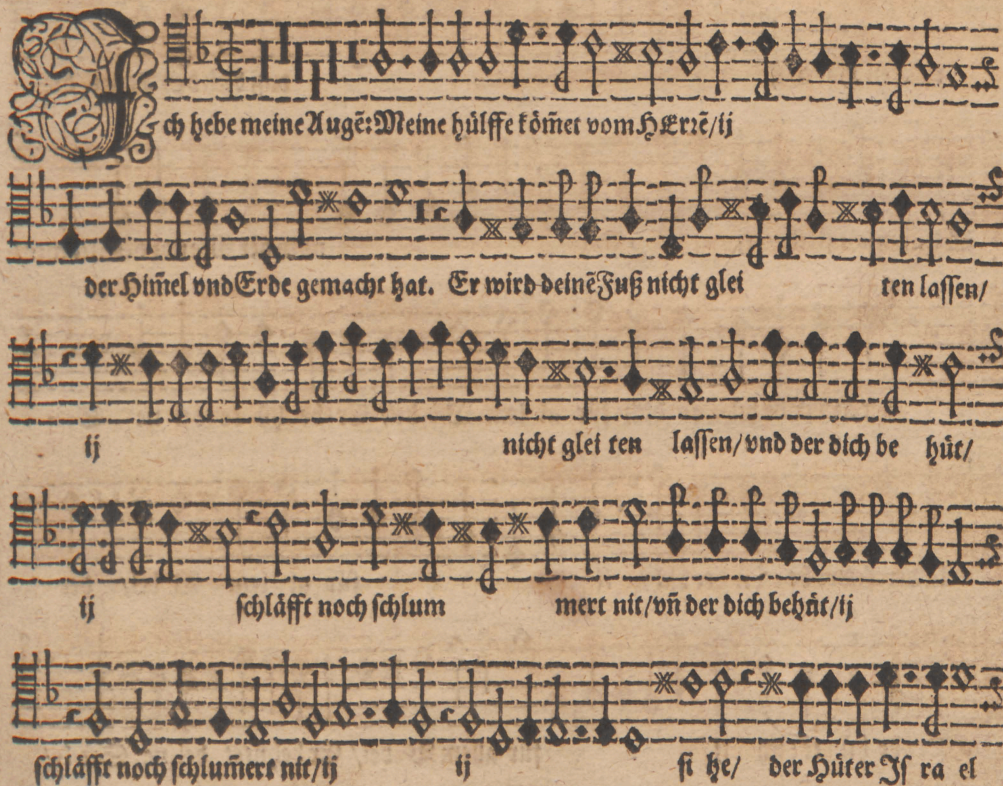 Ich hebe meine Augẽ: Meine hülffe köm̃et vom HErrẽ/ij
der Him̃el vnd Erde gemacht hat. Er wird deinẽ Fuß nicht glei ten lassen/
ij nicht glei ten lassen/ vnd der dich be hüt/
ij schläfft noch schlum mert nit/ vn̄ der dich behüt/ij
schläfft noch schlum̃ert nit/ij ij si he/ der Hüter Js ra el